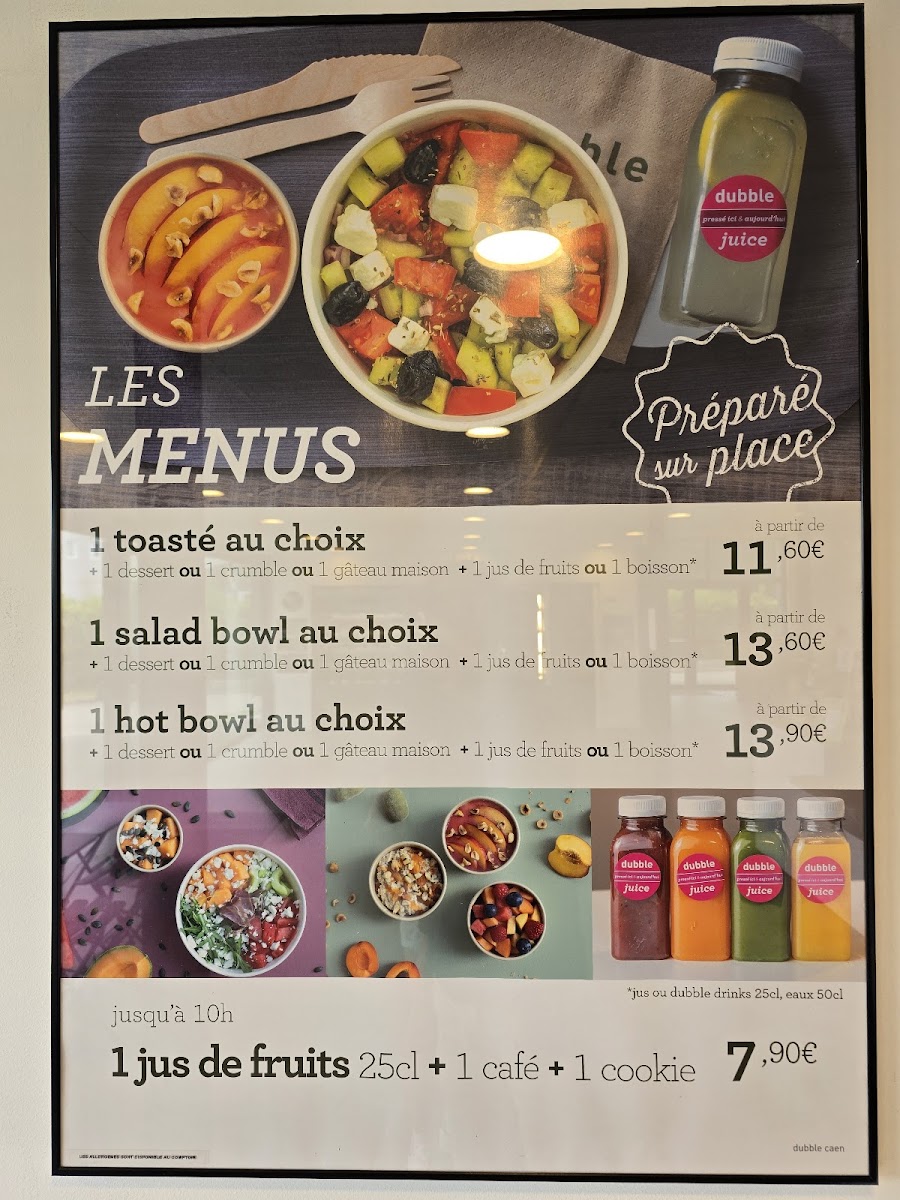 ble
dubble
pressé ici & aujourd'hui
juice
LES
MENUS
Préparé
sur place
1 toasté au choix
+ 1 dessert ou 1 crumble ou 1 gâteau maison + 1 jus de fruits ou 1 boisson*
à partir de
11,60€
1 salad bowl au choix
+ 1 dessert ou 1 crumble ou 1 gâteau maison + 1 jus de fruits ou 1 boisson*
à partir de
13,60€
1 hot bowl au choix
+ 1 dessert ou 1 crumble ou 1 gâteau maison + 1 jus de fruits ou 1 boisson*
à partir de
13,90€
dubble
pressé ici & aujourd'hui
juice
dubble
pressé ici & aujourd'hui
juice
dubble
pressé ici & aujourd'hui
juice
dubble
pressé ici & aujourd'hui
juice
*jus ou dubble drinks 25cl, eaux 50cl
jusqu'à 10h
1 jus de fruits 25cl + 1 café + 1 cookie 7,90€
LES ALLERGENES SONT DISPONIBLE AU COMPTOIR
dubble caen